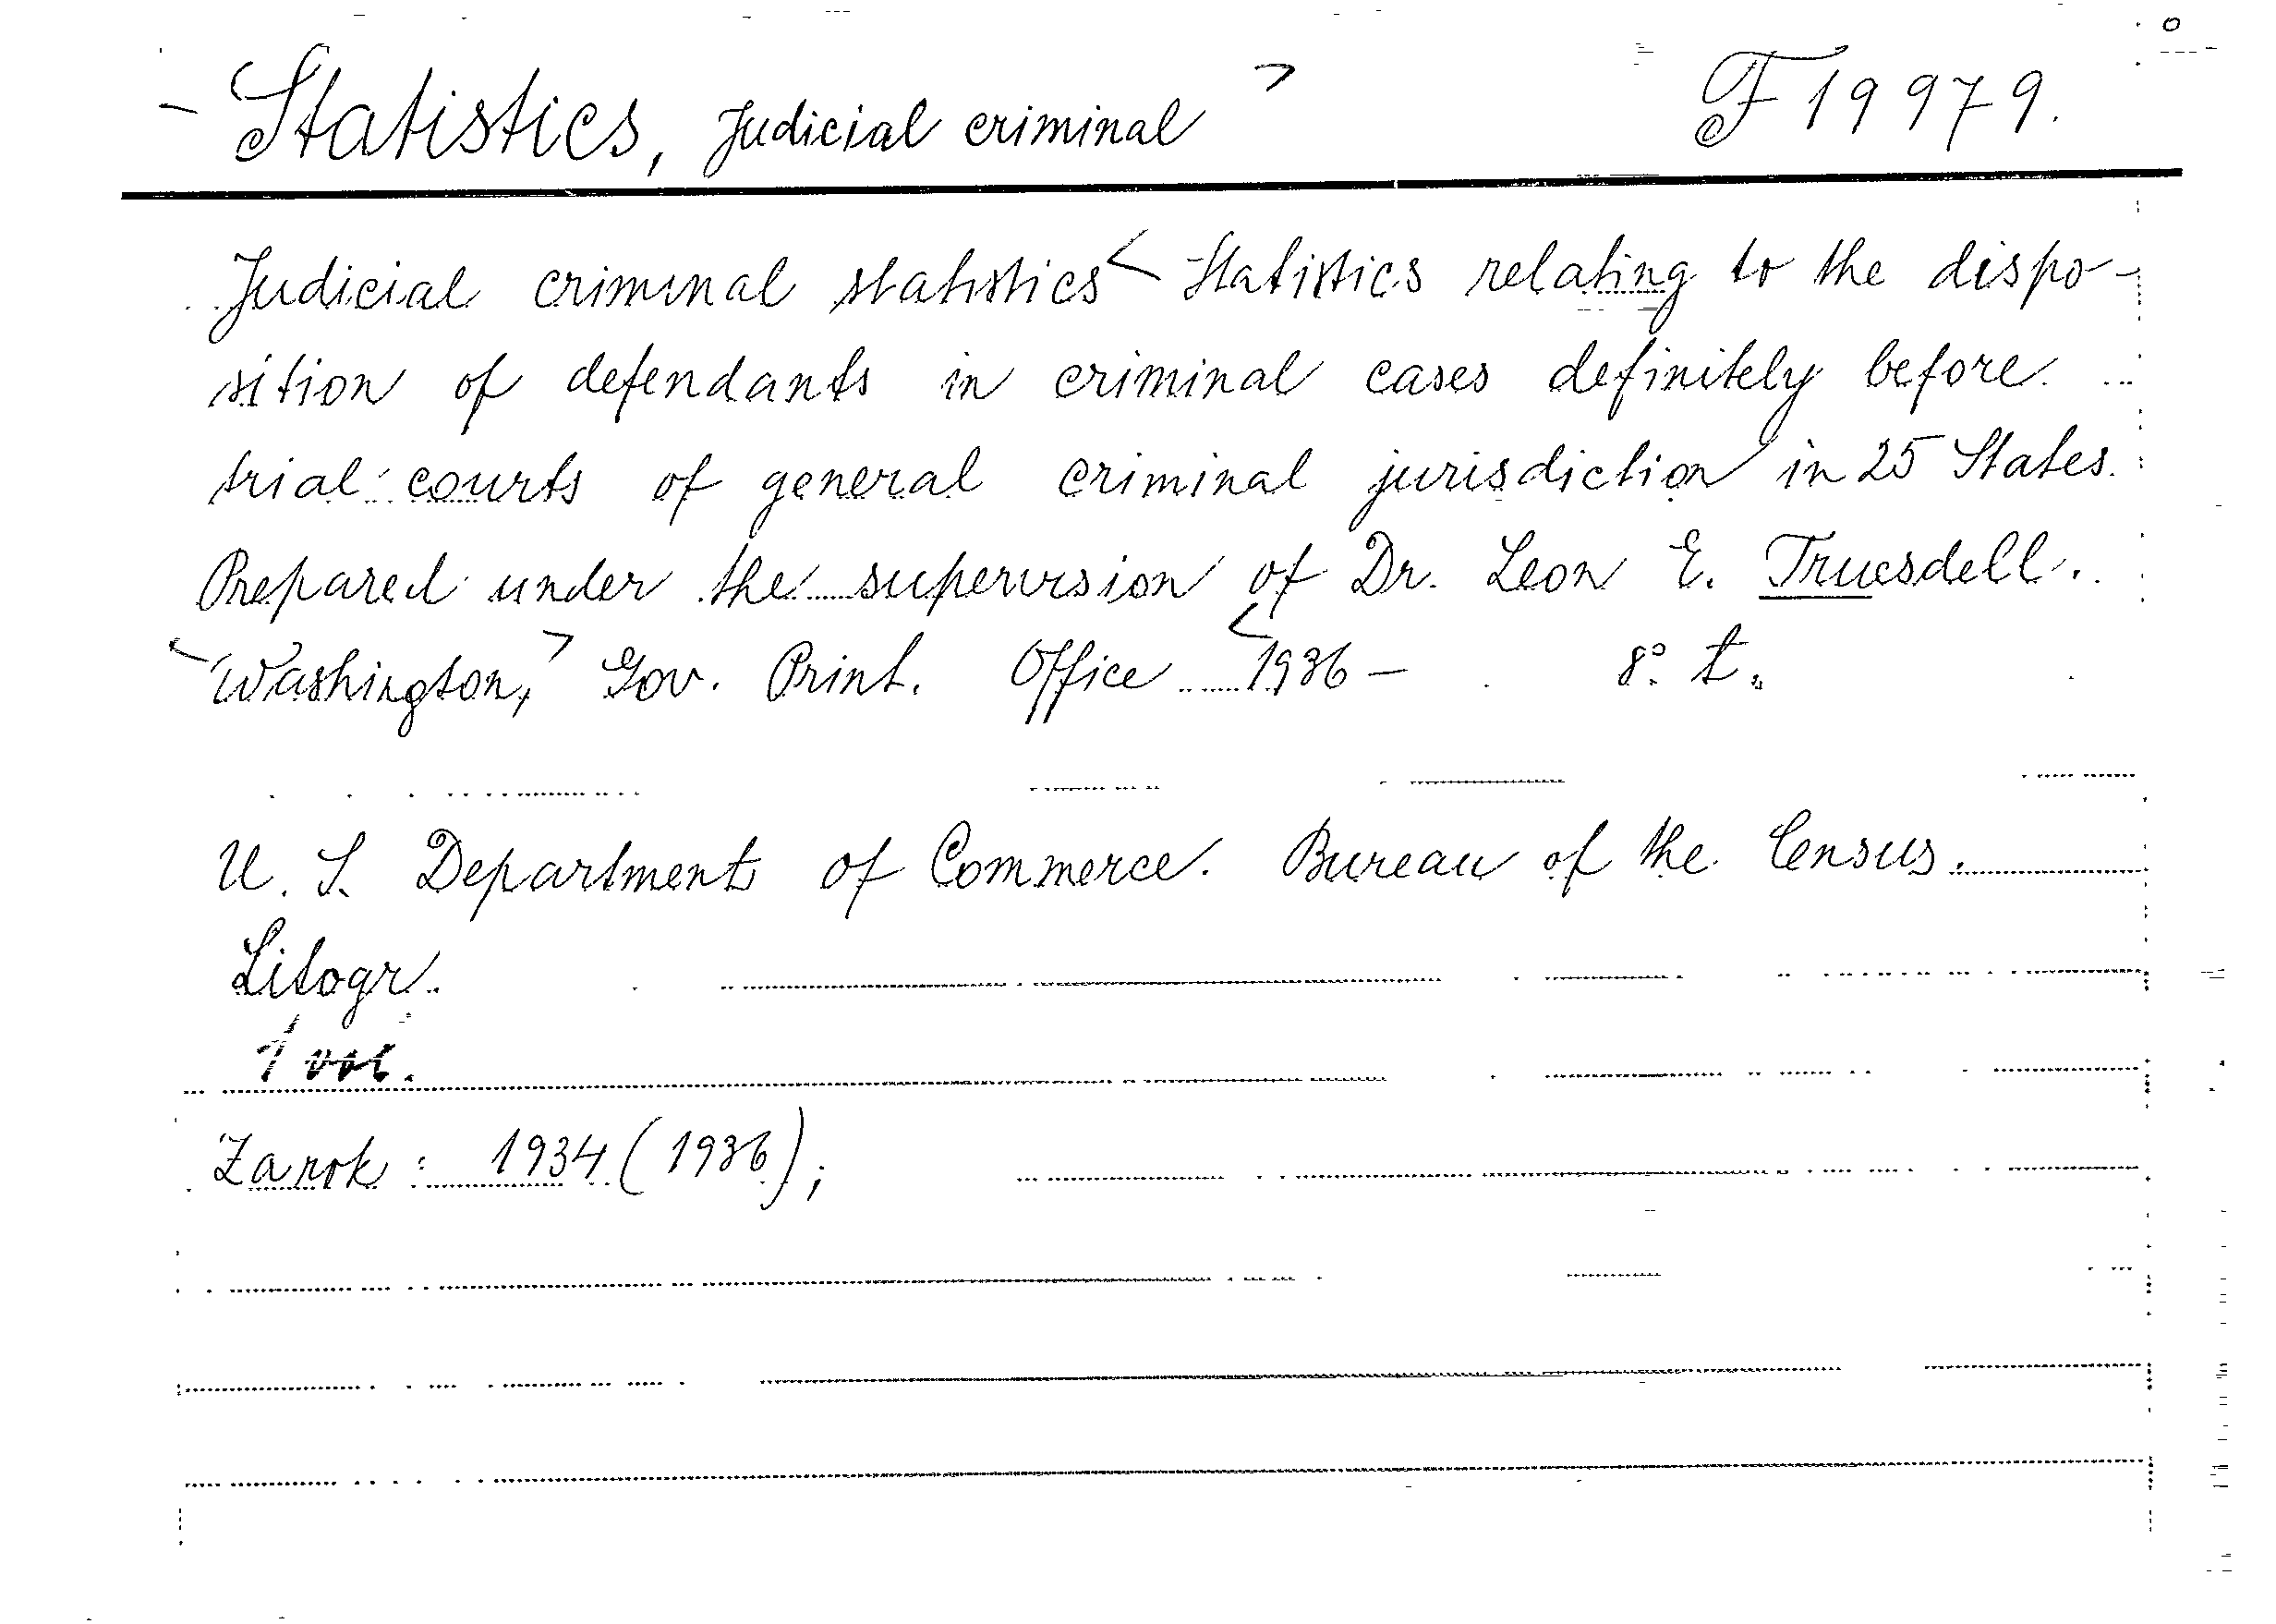 Statistics, Judicial criminal F 19979.
Judicial criminal statistics < Statistics relating to the dispo-
sition of defendants in criminal cases definitely before
trial courts of general criminal jurisdiction in 25 States.
Prepared under the supervision of Dr. Leon E. Truesdell.
Washington, Gov. Print. Office 1936 - 8° t.
U. S. Department of Commerce. Bureau of the Census.
Litogr.
1 vol.
Zarok: 1934 (1936);